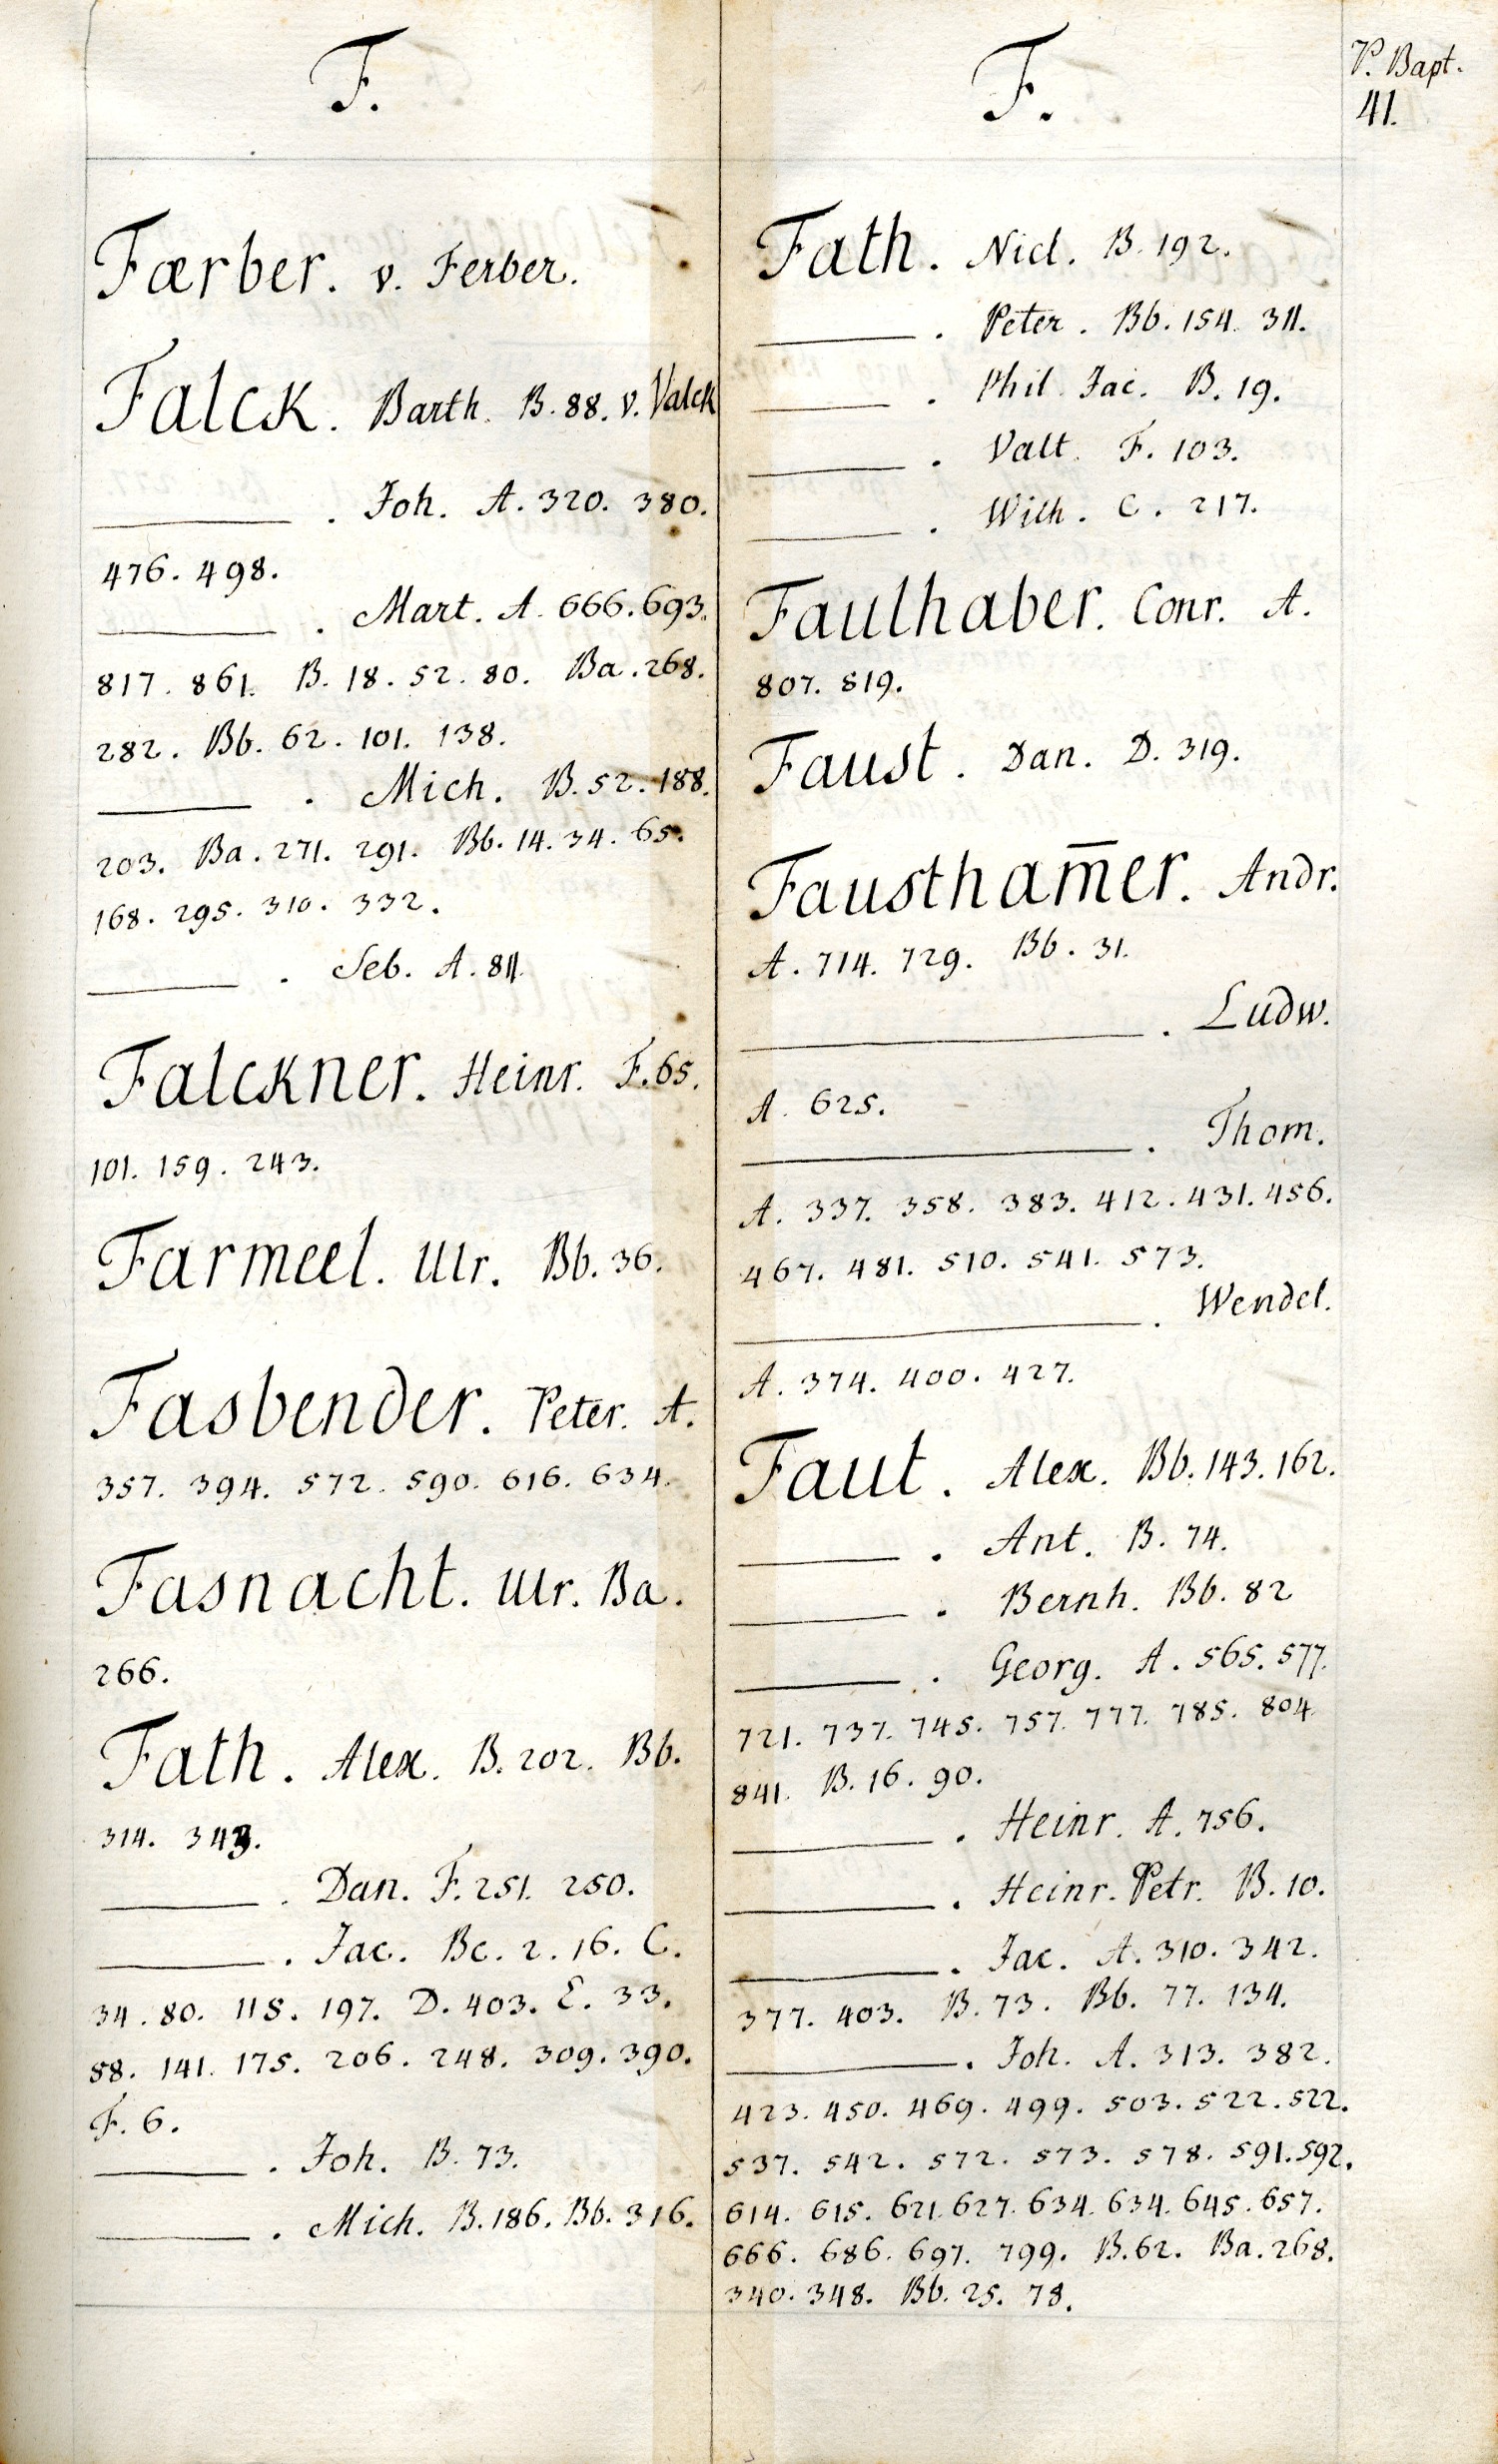 F.
Færber. v. Ferber.
Falck. Barth. B. 88. v. Valck
———. Joh. A. 320. 380.
476. 498.
———. Mart. A. 666. 693.
817. 861. B. 18. 52. 80. Ba. 268.
282. Bb. 62. 101. 138.
———. Mich. B. 52. 188.
203. Ba. 271. 291. Bb. 14. 34. 65.
168. 295. 310. 332.
———. Seb. A. 811.
Falckner. Heinr. F. 65.
101. 159. 243.
Farmeel. Ulr. Bb. 36.
Fasbender. Peter. A.
357. 394. 572. 590. 616. 634.
Fasnacht. Ulr. Ba.
266.
Fath. Alex. B. 202. Bb.
314. 343.
———. Dan. F. 251. 250.
———. Jac. Bc. 2. 16. C.
34. 80. 115. 197. D. 403. E. 33.
58. 141. 175. 206. 248. 309. 390.
F. 6.
———. Joh. B. 73.
———. Mich. B. 186. Bb. 316.
F.
P. Bapt.
41.
Fath. Nicl. B. 192.
———. Peter. Bb. 154. 311.
———. Phil. Jac. B. 19.
———. Valt. F. 103.
———. Wilh. C. 217.
Faulhaber. Conr. A.
807. 819.
Faust. Dan. D. 319.
Faustham̅er. Andr.
A. 714. 729. Bb. 31.
———. Ludw.
A. 625.
———. Thom.
A. 337. 358. 383. 412. 431. 456.
467. 481. 510. 541. 573.
———. Wendel.
A. 374. 400. 427.
Faut. Alex. Bb. 143. 162.
———. Ant. B. 74.
———. Bernh. Bb. 82
———. Georg. A. 565. 577.
721. 737. 745. 757. 777. 785. 804.
841. B. 16. 90.
———. Heinr. A. 756.
———. Heinr. Petr. B. 10.
———. Jac. A. 310. 342.
377. 403. B. 73. Bb. 77. 134.
———. Joh. A. 313. 382.
423. 450. 469. 499. 503. 522. 522.
537. 542. 572. 573. 578. 591. 592.
614. 615. 621. 627. 634. 634. 645. 657.
666. 686. 697. 799. B. 62. Ba. 268.
340. 348. Bb. 25. 78.